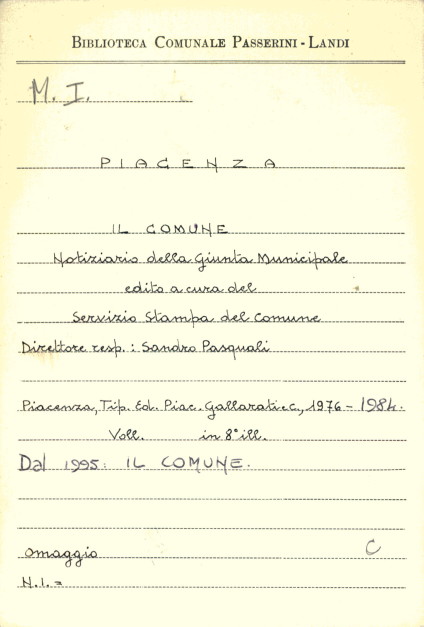 BIBLIOTECA COMUNALE PASSERINI - LANDI
M. I.
PIACENZA
IL COMUNE
Notiziario della Giunta Municipale
edito a cura del
Servizio Stampa del Comune
Direttore resp.: Sandro Pasquali
Piacenza, Tip. Ed. Piac. Gallarati e C., 1976 - 1984.
Voll. in 8° ill.
Dal 1995: IL COMUNE.
omaggio C
N.I. =